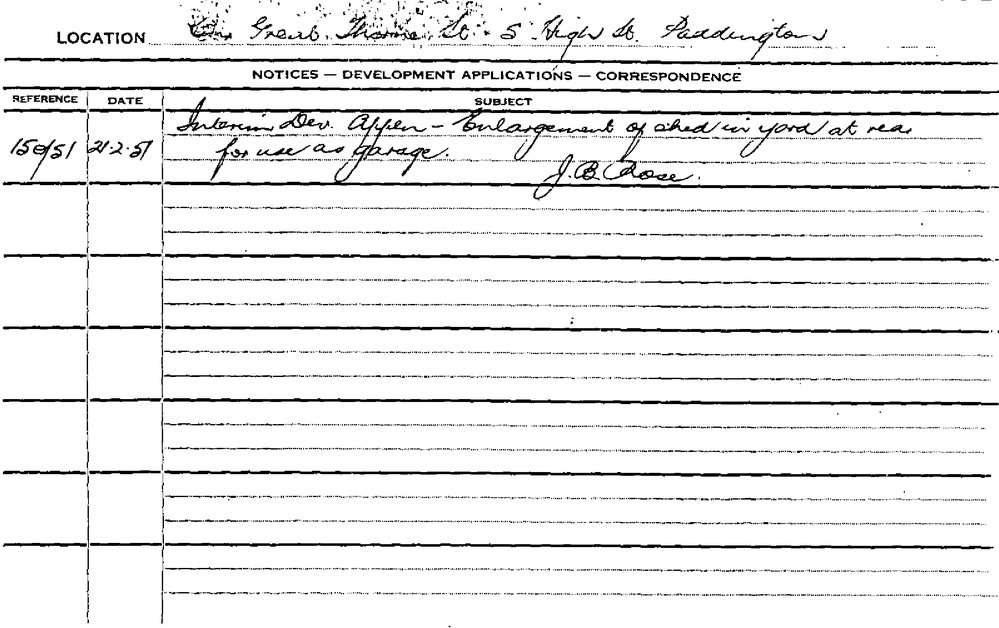 LOCATION Cnr Great Thorne St. & 5 High St. Paddington
NOTICES — DEVELOPMENT APPLICATIONS — CORRESPONDENCE
REFERENCE DATE SUBJECT
Interim Dev. Appcn - Enlargement of shed in yard at rear
21·2·51 for use as garage.
J.B.